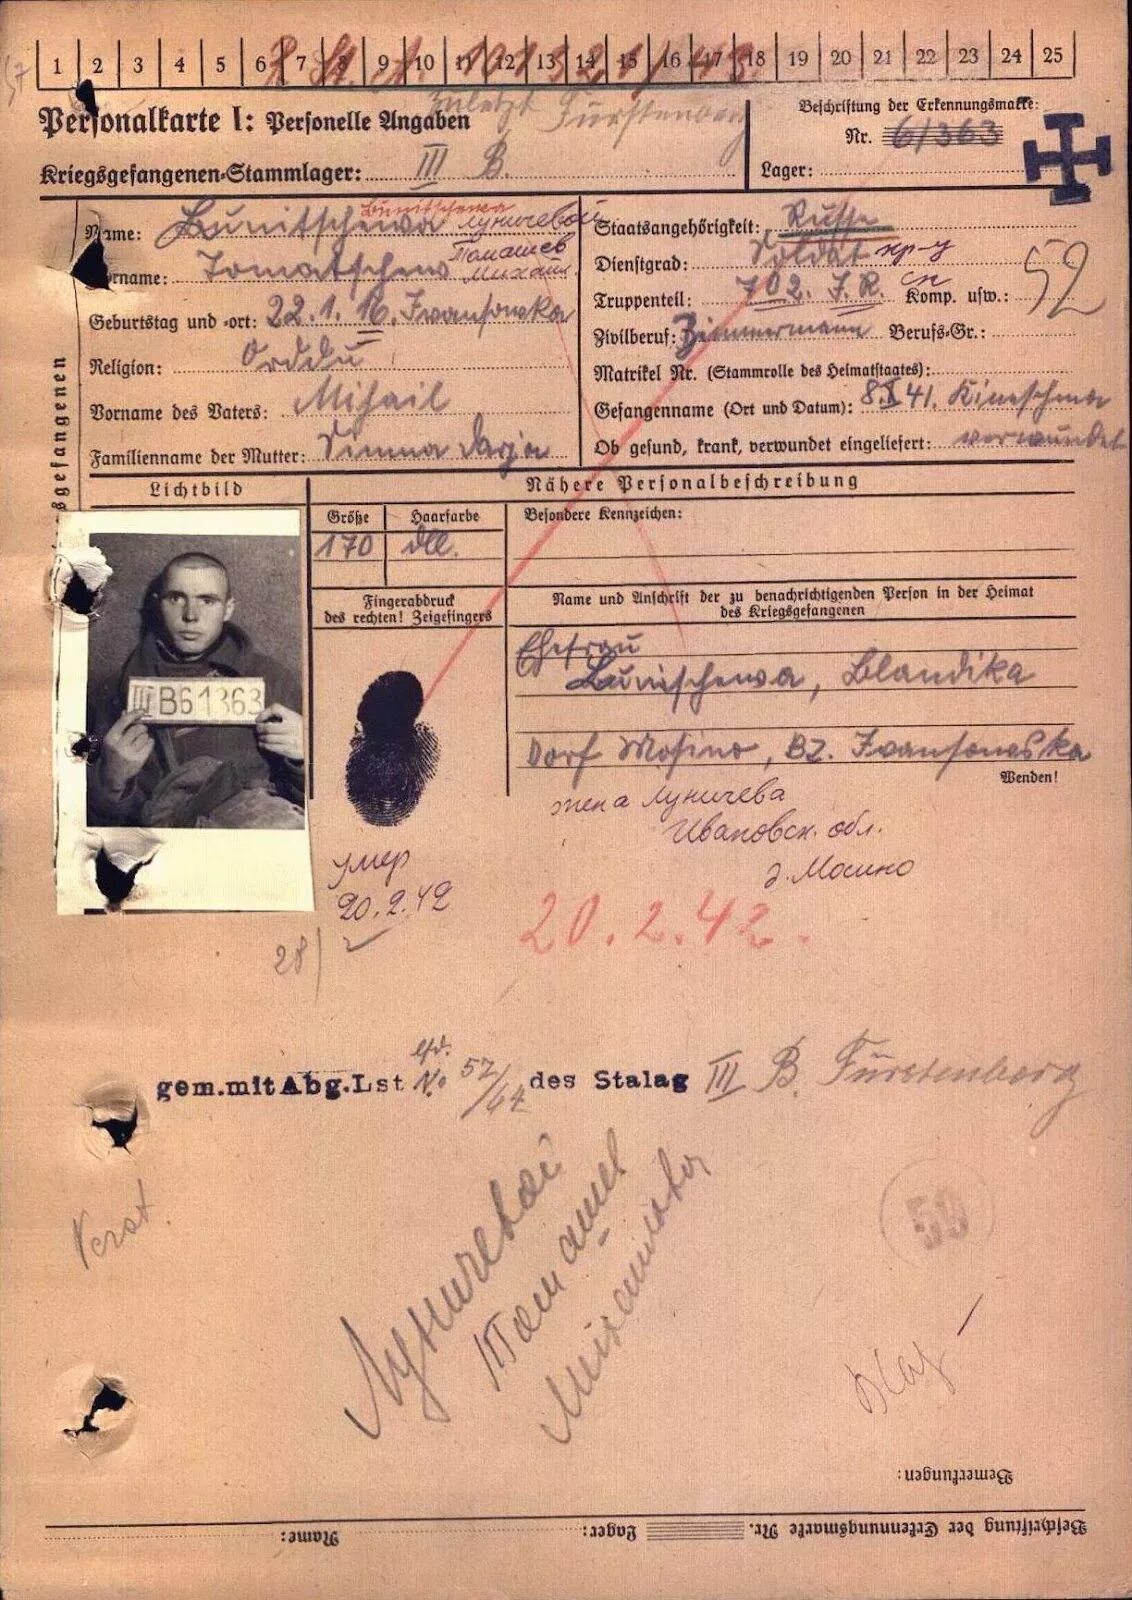 1 2 3 4 5 6 7 8 9 10 11 12 13 14 15 16 17 18 19 20 21 22 23 24 25
Personalkarte I: Personelle Angaben
zuletzt Fürstenberg
Kriegsgefangenen-Stammlager: III B.
Beschriftung der Erkennungsmarke:
Nr. 61363
Lager:
Name: Lunitschewa Луничевой
Vorname: Tomatschew Томашев Михаил
Geburtstag und -ort: 22.1.16. Iwanſowska
Religion:
Vorname des Vaters: Mihail
Familienname der Mutter: Simma Darja
Staatsangehörigkeit: Russe
Dienstgrad: Soldat кр-ц
Truppenteil: 702. I.R. сп Komp. usw.: 52
Zivilberuf: Zimmermann Berufs-Gr.:
Matrikel Nr. (Stammrolle des Heimatstaates):
Gefangenname (Ort und Datum): 8.X 41. Kineschma
Ob gesund, krank, verwundet eingeliefert: verwundet
Lichtbild
Nähere Personalbeschreibung
Größe Haarfarbe
170 dll.
Besondere Kennzeichen:
Fingerabdruck
des rechten! Zeigefingers
Name und Anschrift der zu benachrichtigenden Person in der Heimat
des Kriegsgefangenen
Ehefrau
Lunischewa, Blandika
Dorf Mosino, BZ.
Wenden!
III B61363
жена Луничева
Ивановск. обл.
д. Мосино
умер
20.2.42
20.2.42.
28)
gem.mit Abg.Lst lfd. No 57/64 des Stalag III B. Fürstenberg
Луничевой
Томашев
59
Bemerkungen:
Beschriftung der Erkennungsmarke Nr. Lager: Name: